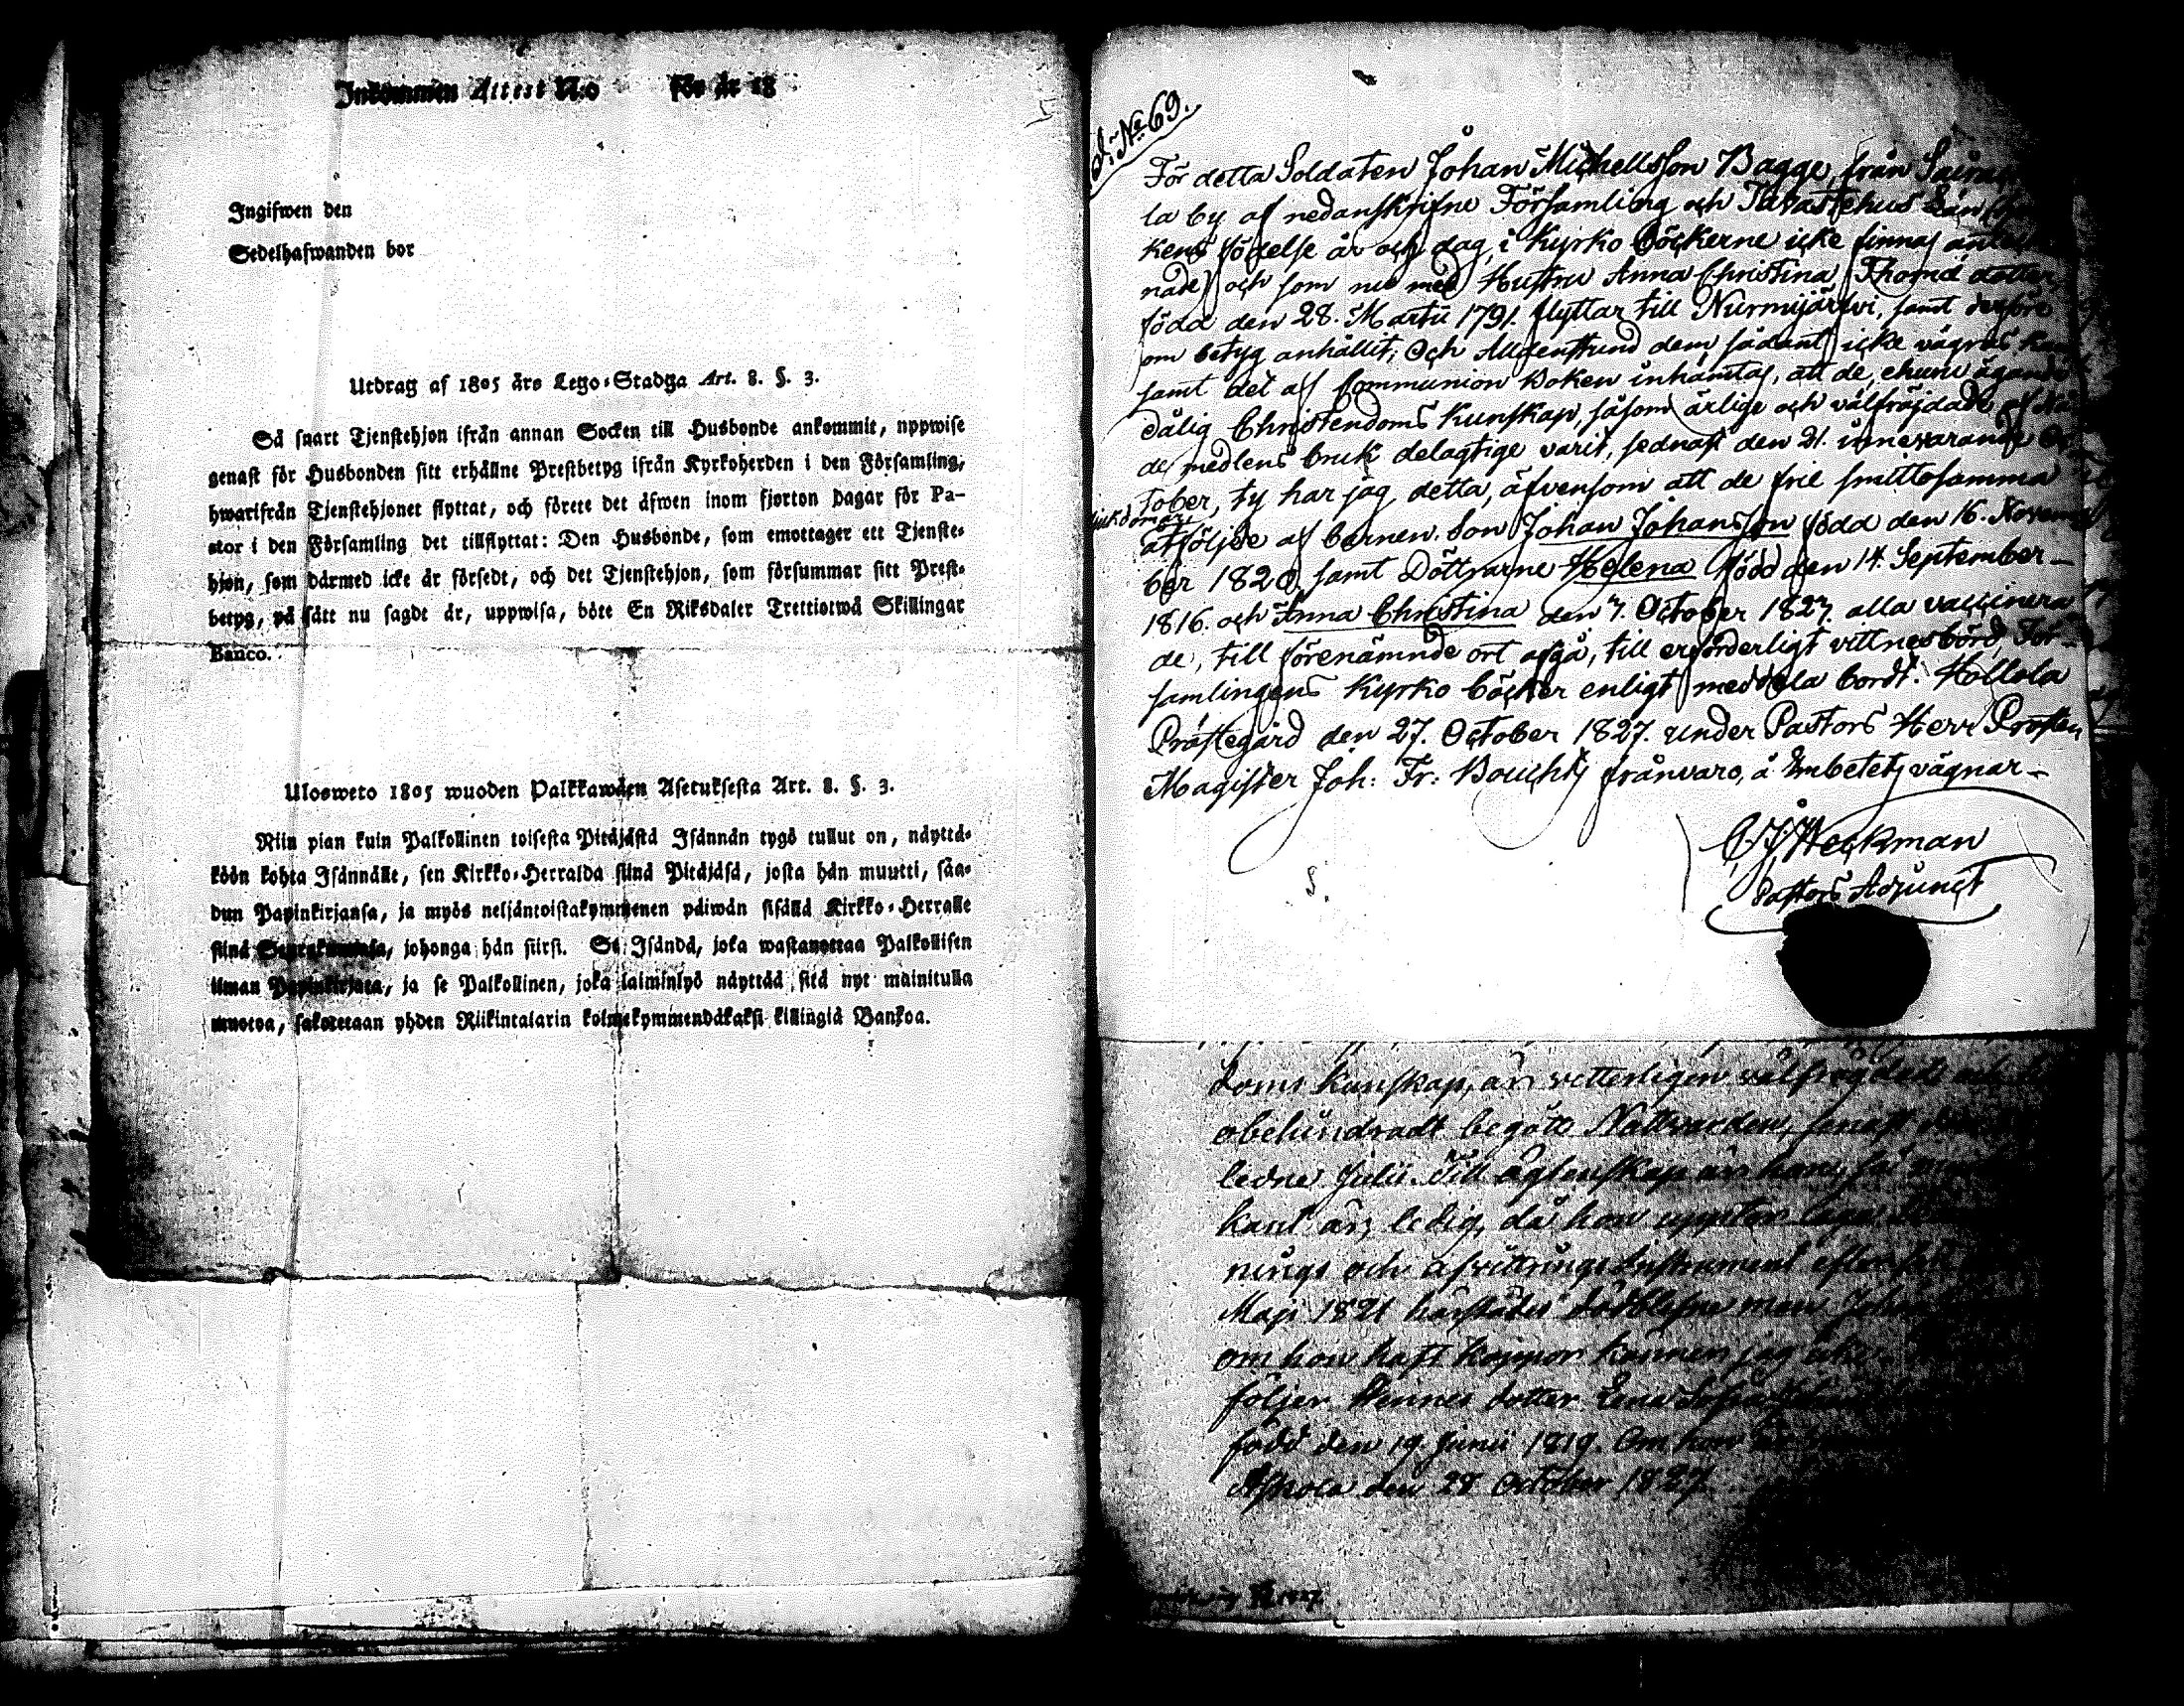 Inkommen Attest N:o för år 18
Ingifwen den
Sedelhafwanden bor
Utdrag af 1805 års Lego-Stadga Art. 8. §. 3.
Så snart Tjenstehjon ifrån annan Socken till Husbonde ankommit, uppwise
genast för Husbonden sitt erhållne Prestbetyg ifrån Kyrkoherden i den Församling,
hwarifrån Tjenstehjonet flyttat, och förete det äfwen inom fjorton dagar för Pa-
stor i den Församling det tillflyttat: Den Husbonde, som emottager ett Tjenste-
hjon, som därmed icke är försedt, och det Tjenstehjon, som försummar sitt Prest-
betyg, på sätt nu sagdt är, uppwisa, böte En Riksdaler Trettiotwå Skillingar
Banco.
Ulosweto 1805 wuoden Palkkawäen Asetuksesta Art. 8. §. 3.
Niin pian kuin Palkollinen toisesta Pitäjästä Isännän tygö tullut on, näyttä-
köön kohta Isännälle, sen Kirkko-Herralda siinä Pitäjäsä, josta hän muutti, saa-
dun Papinkirjansa, ja myös neljäntoistakymmenen päiwän sisällä Kirkko-Herralle
siinä Seurakunnasa, johonga hän siirsi. Se Isändä, joka wastanottaa Palkollisen
ilman Papinkirjata, ja se Palkollinen, joka laiminlyö näyttää sitä nyt mainitulla
muotoa, sakotetaan yhden Riikintalarin kolmekymmendäkaksi killingiä Bankoa.
No 69.
För detta Soldaten Johan Michellsson Bagge, från
la by af nedanskrifne Församling och Tavastehus Län
kens födelse år och dag, i Kyrko böckerne icke finnas
nade och som nu med Hustru Anna Christina Thomæ dotter
född den 28. Martii 1791. flyttar till Nurmijärvi, samt derföre
om betyg anhållit; Och Alldenstund dem sådant icke vägras kan
samt det af Communion Boken inhämtas, att de, ehuru ägande
dålig Christendoms Kunskap, såsom ärlige och välfräjdade af Nå
de medlens bruk delagtige varit, sednast den 21. innevarande Oc
tober, ty har jag detta, äfvensom att de frie smittosamma
sjukdomar
åtföljde af barnen. Son Johan Johansson född den 16. Novem
ber 1820, samt Döttrarne Helena född den 14. September
1816. och Anna Christina den 7. October 1827. alla vaccinera
de, till förenämnde ort afgå, till erforderligt vittnesbörd, För-
samlingens Kyrko böcker enligt meddela bordt. Hollola
Prästegård den 27. October 1827. under Pastors Herr Prosten
Magister Joh: Fr: Boucht's frånvaro, å Embetets vägnar
Weckman
Pastors Adjunct
doms kunskap, är vetterligen välfrägdad
obehindradt begått Nattvarden, senast
ledne Julii. Till ägtenskap är hon, så
kant är, ledig, då hon uppter
nings och afvittrings Instrument efter
Maji 1821 härstädes dödblefne man Johan
om hon haft koppor känner jag icke.
följer Hennes dotter Lena Sofia
född den 19 Junii 1819. Om hon
Askola den 28 October 1827.